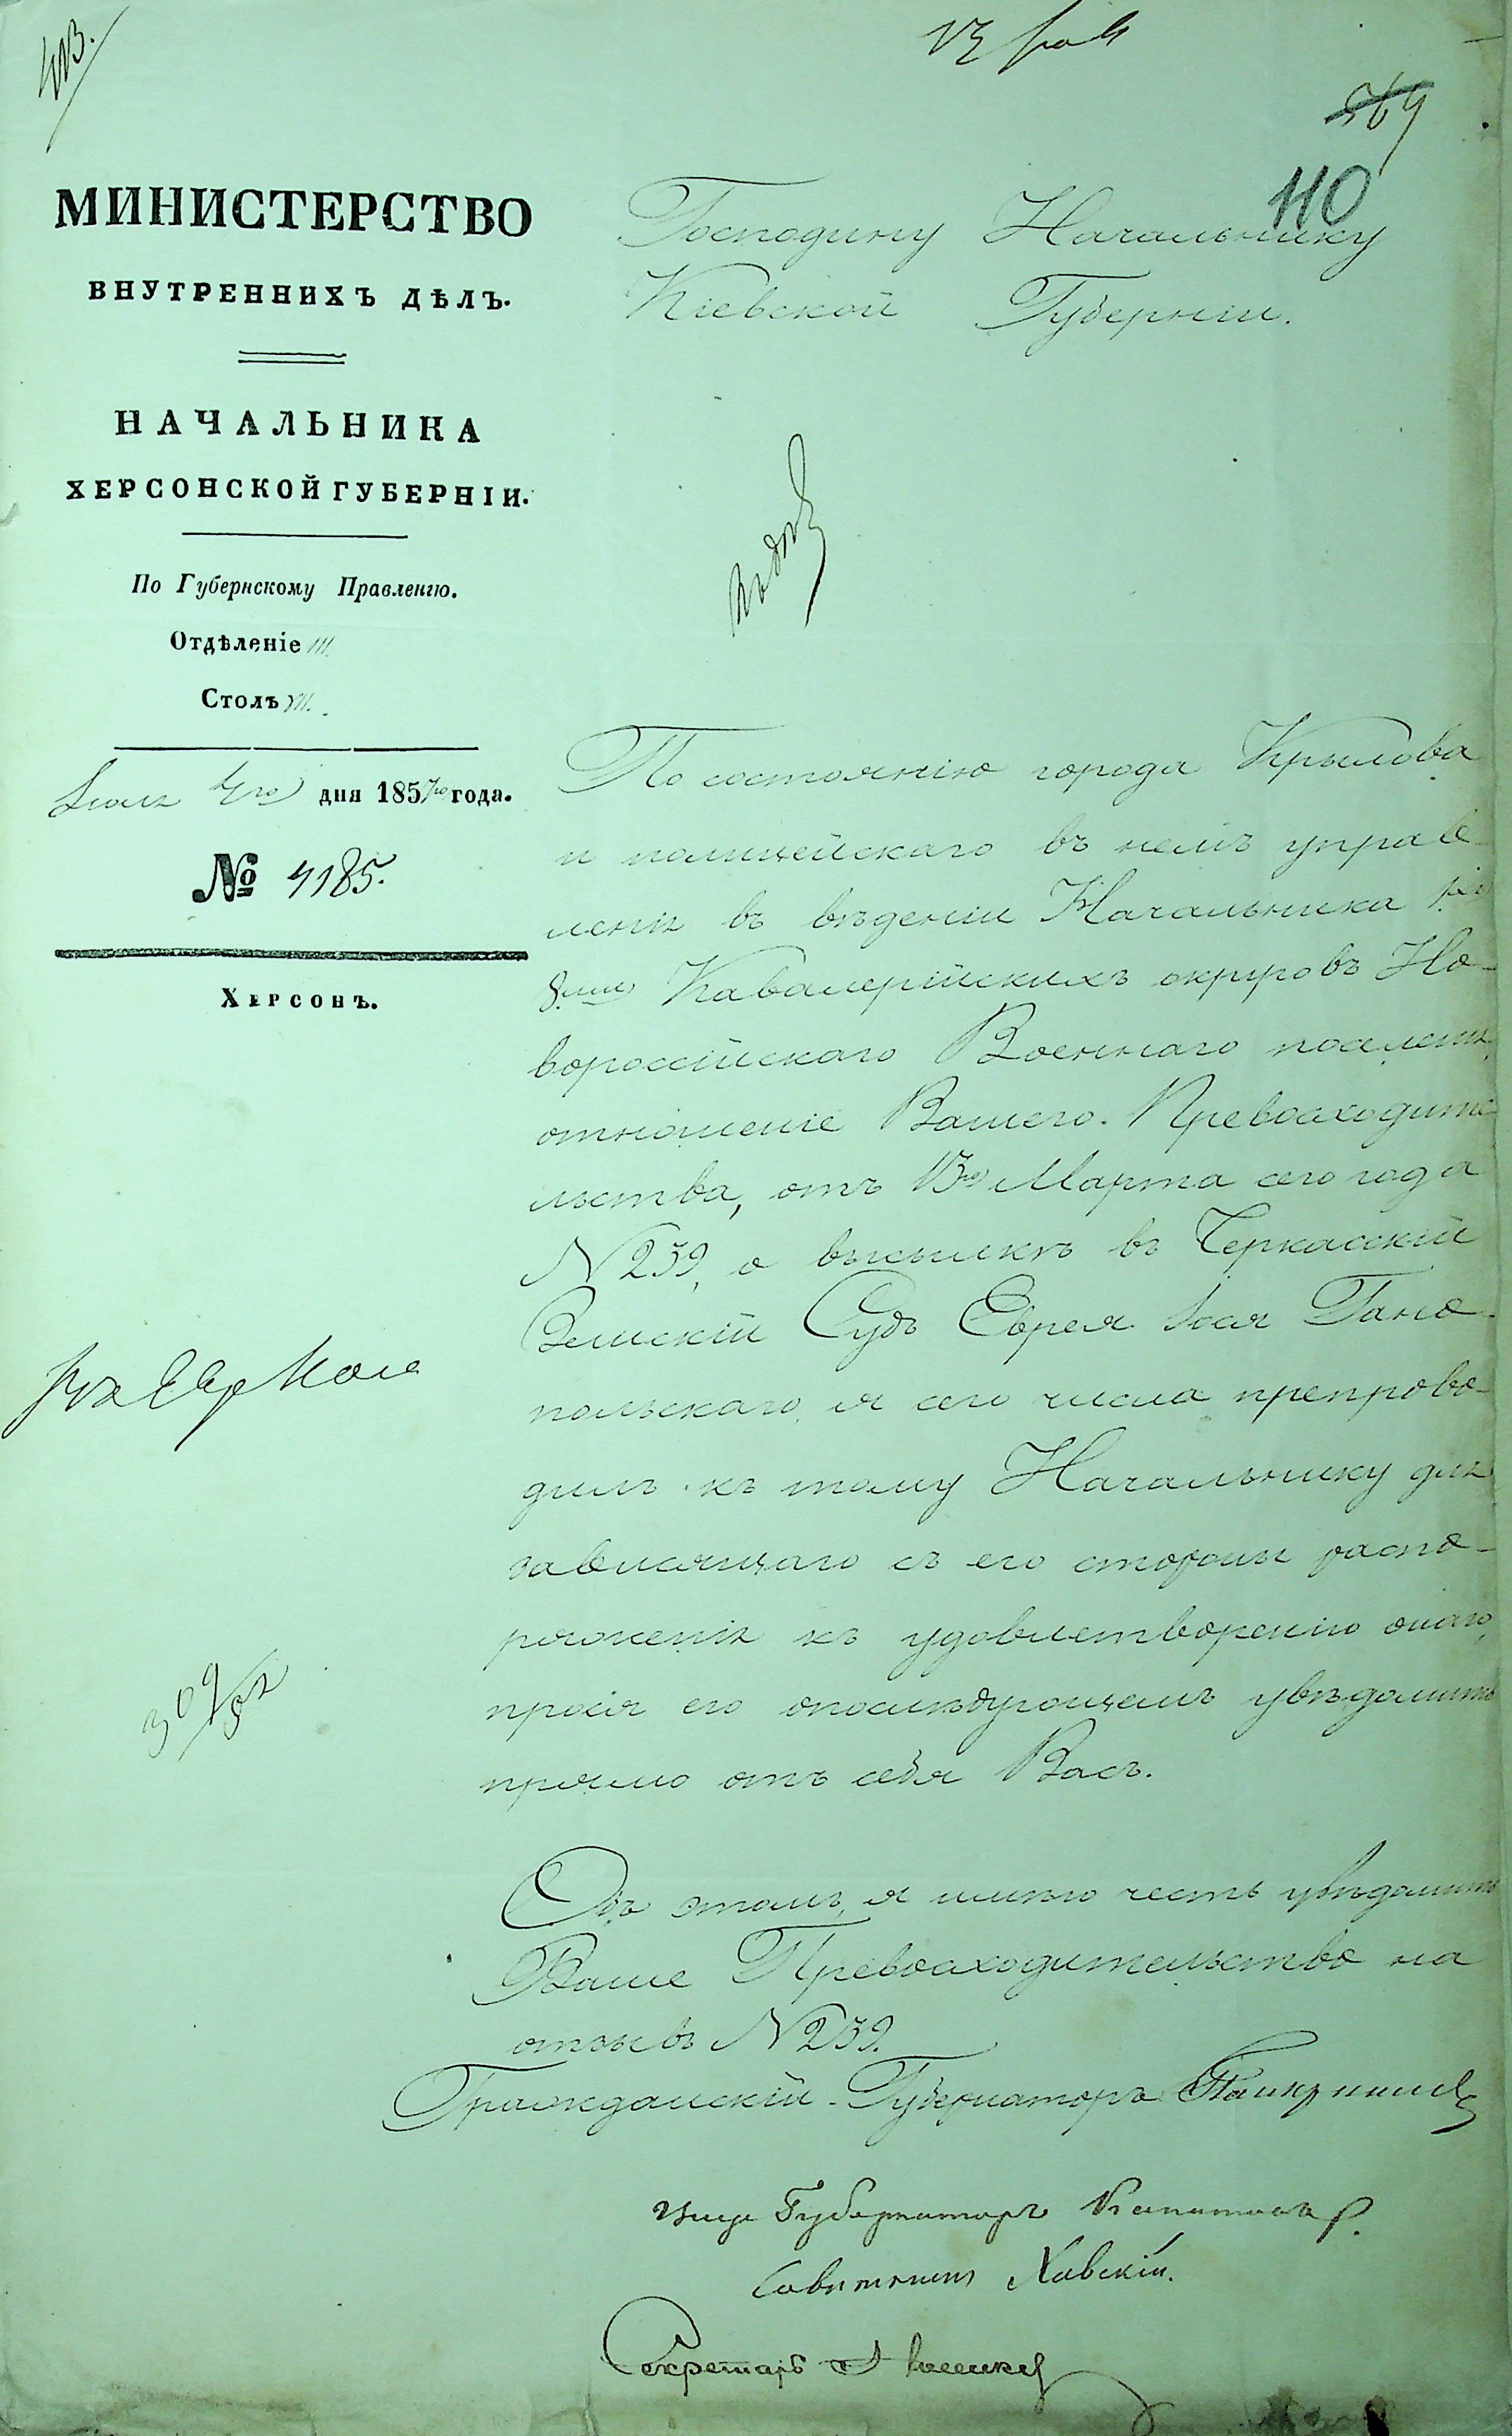 569
110
МИНИСТЕРСТВО
ВНУТРЕННИХЪ ДѢЛЪ.
НАЧАЛЬНИКА
ХЕРСОНСКОЙ ГУБЕРНІИ.
По Губернскому Правленію.
Отдѣленіе III.
Столъ VII.
дня 1857го года.
№ 4185.
Херсонъ.
Господину Начальнику
Кіевской Губерніи.
По состоянію города Крылова
и полицейскаго въ немъ управ-
ленія въ вѣденіи Начальника
8ми Кавалерійскихъ округовъ Но-
вороссійскаго Военнаго поселенія,
отношеніе Вашего Превосходите-
льства, отъ 13го Марта сего года
N 239, о высылкѣ въ Черкасскій
Земскій Судъ Еврея Іося Гано-
польскаго, я сего числа препрово-
дилъ къ тому Начальнику для
зависящаго съ его стороны распо-
ряженія къ удовлетворенію онаго,
прося его опослѣдующемъ увѣдомить
прямо отъ себя Васъ.
Объ этомъ, я имѣю честь увѣдомить
Ваше Превосходительство на
отзывъ N 239.
Гражданскій Губернаторъ
Вице Губернаторъ
Совѣтникъ Хавскій.
Секретарь